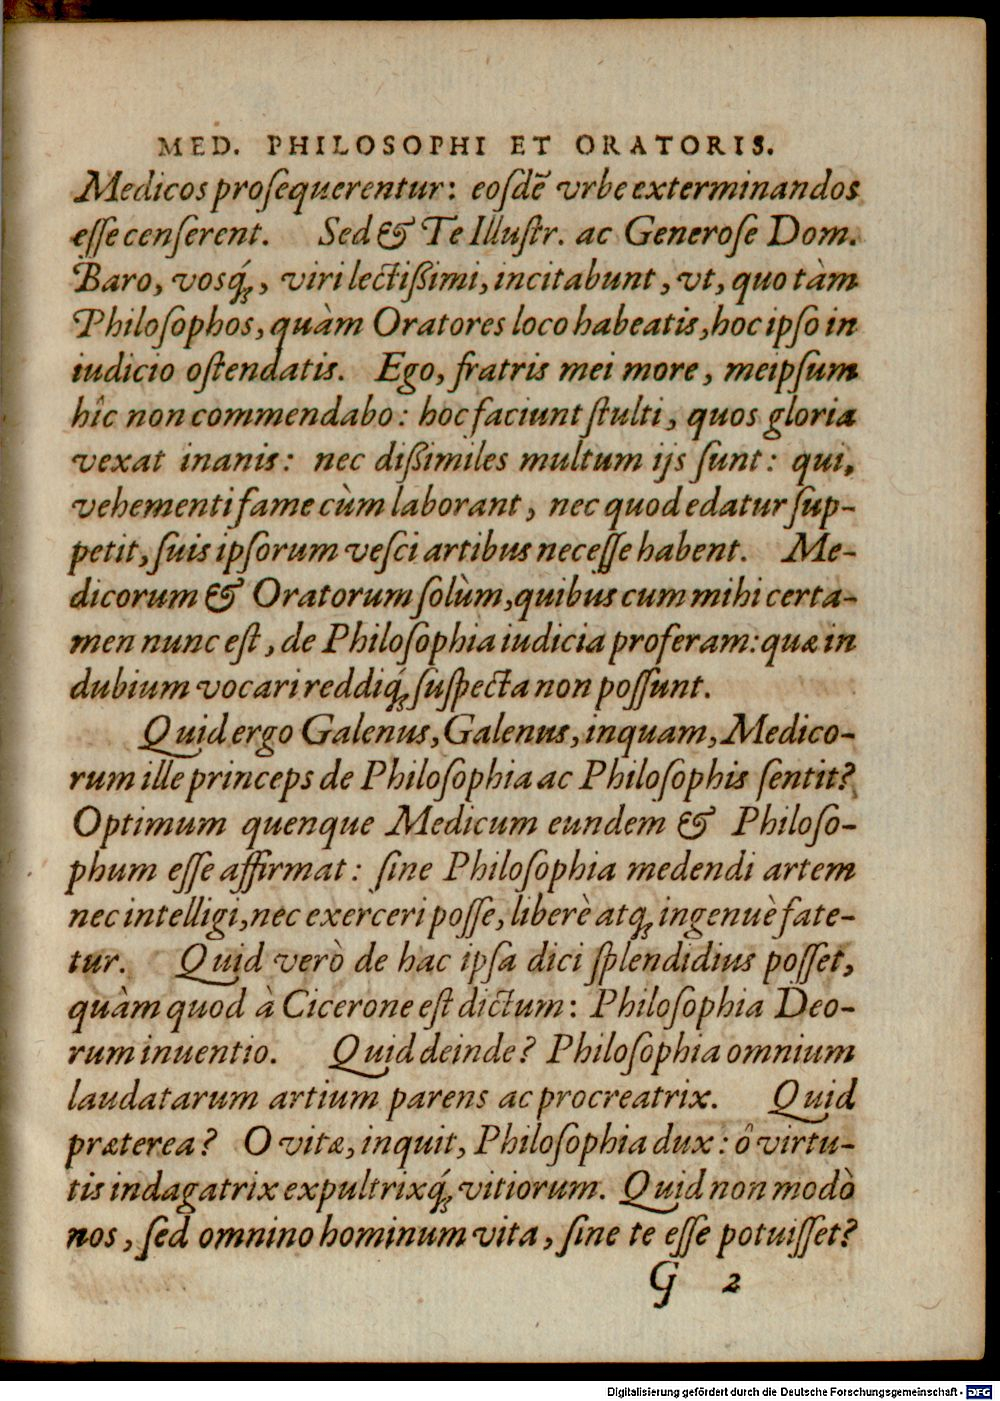 MED. PHILOSOPHI ET ORATORIS.
Medicos proſequerentur: eoſdẽ vrbe exterminandos
eſſe cenſerent. Sed & Te Illuſtr. ac Generoſe Dom.
Baro, vosq́ꝫ, viri lectißimi, incitabunt, vt, quo tàm
Philoſophos, quàm Oratores loco habeatis, hoc ipſo in
iudicio oſtendatis. Ego, fratris mei more, meipſum
hîc non commendabo: hoc faciunt ſtulti, quos gloria
vexat inanis: nec dißimiles multum ijs ſunt: qui,
vehementi fame cùm laborant, nec quod edatur ſup-
petit, ſuis ipſorum veſci artibus neceſſe habent. Me-
dicorum & Oratorum ſolùm, quibus cum mihi certa-
men nunc eſt, de Philoſophia iudicia proferam: quæ in
dubium vocari reddiq́ꝫ ſuſpecta non poſſunt.
Quid ergo Galenus, Galenus, inquam, Medico-
rum ille princeps de Philoſophia ac Philoſophis ſentit?
Optimum quenque Medicum eundem & Philoſo-
phum eſſe affirmat: ſine Philoſophia medendi artem
nec intelligi, nec exerceri poſſe, liberè atqꝫ ingenuè fate-
tur. Quid verò de hac ipſa dici ſplendidius poſſet,
quàm quod à Cicerone eſt dictum: Philoſophia Deo-
rum inuentio. Quid deinde? Philoſophia omnium
laudatarum artium parens ac procreatrix. Quid
præterea? O vitæ, inquit, Philoſophia dux: ô virtu-
tis indagatrix expultrixq́ꝫ vitiorum. Quid non modò
nos, ſed omnino hominum vita, ſine te eſſe potuiſſet?
G 2
Digitalisierung gefördert durch die Deutsche Forschungsgemeinschaft - DFG